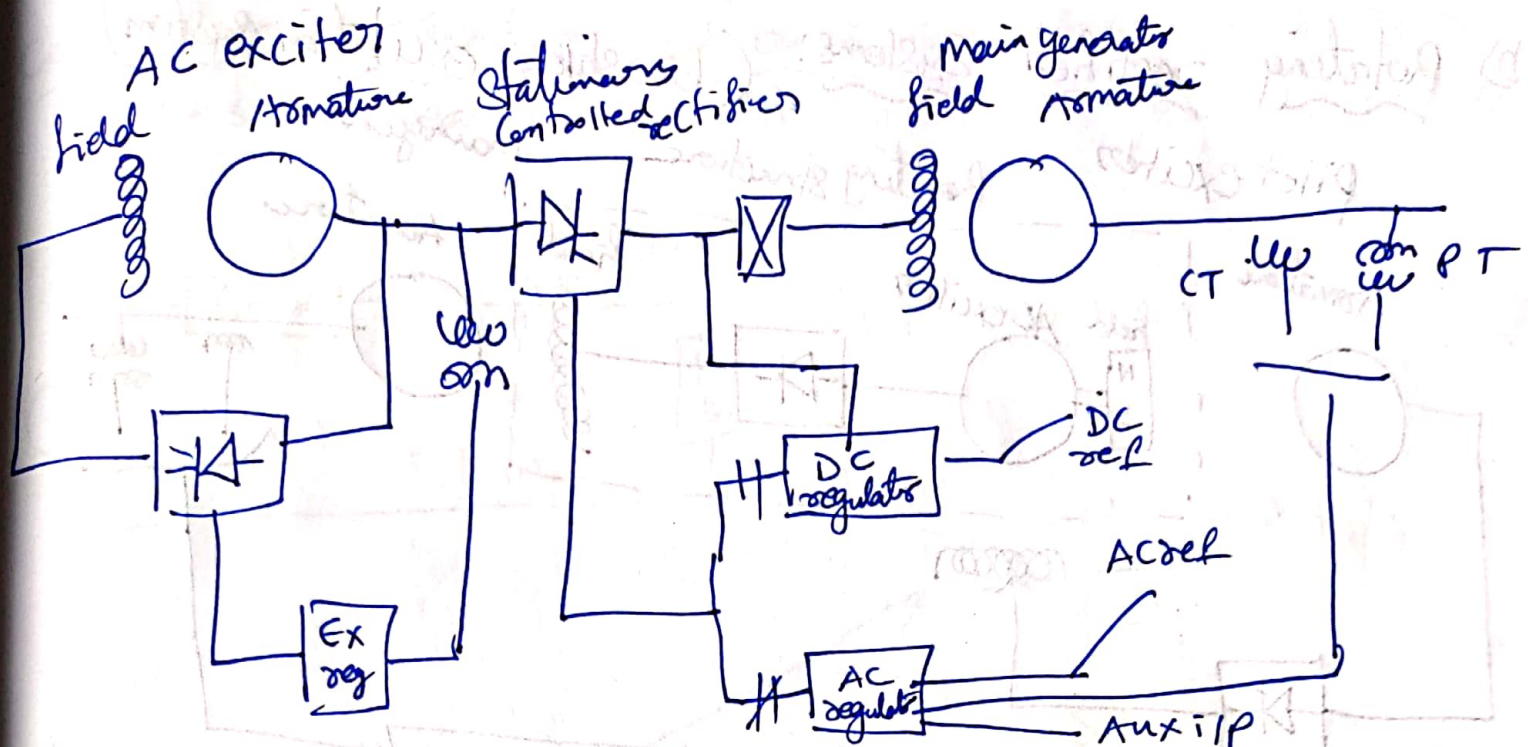 AC exciter
field
Armature
Stationary
Controlled rectifier
Main generator
field Armature
CT
PT
DC
regulator
DC
ref
AC ref
Ex
reg
AC
regulator
Aux i/p